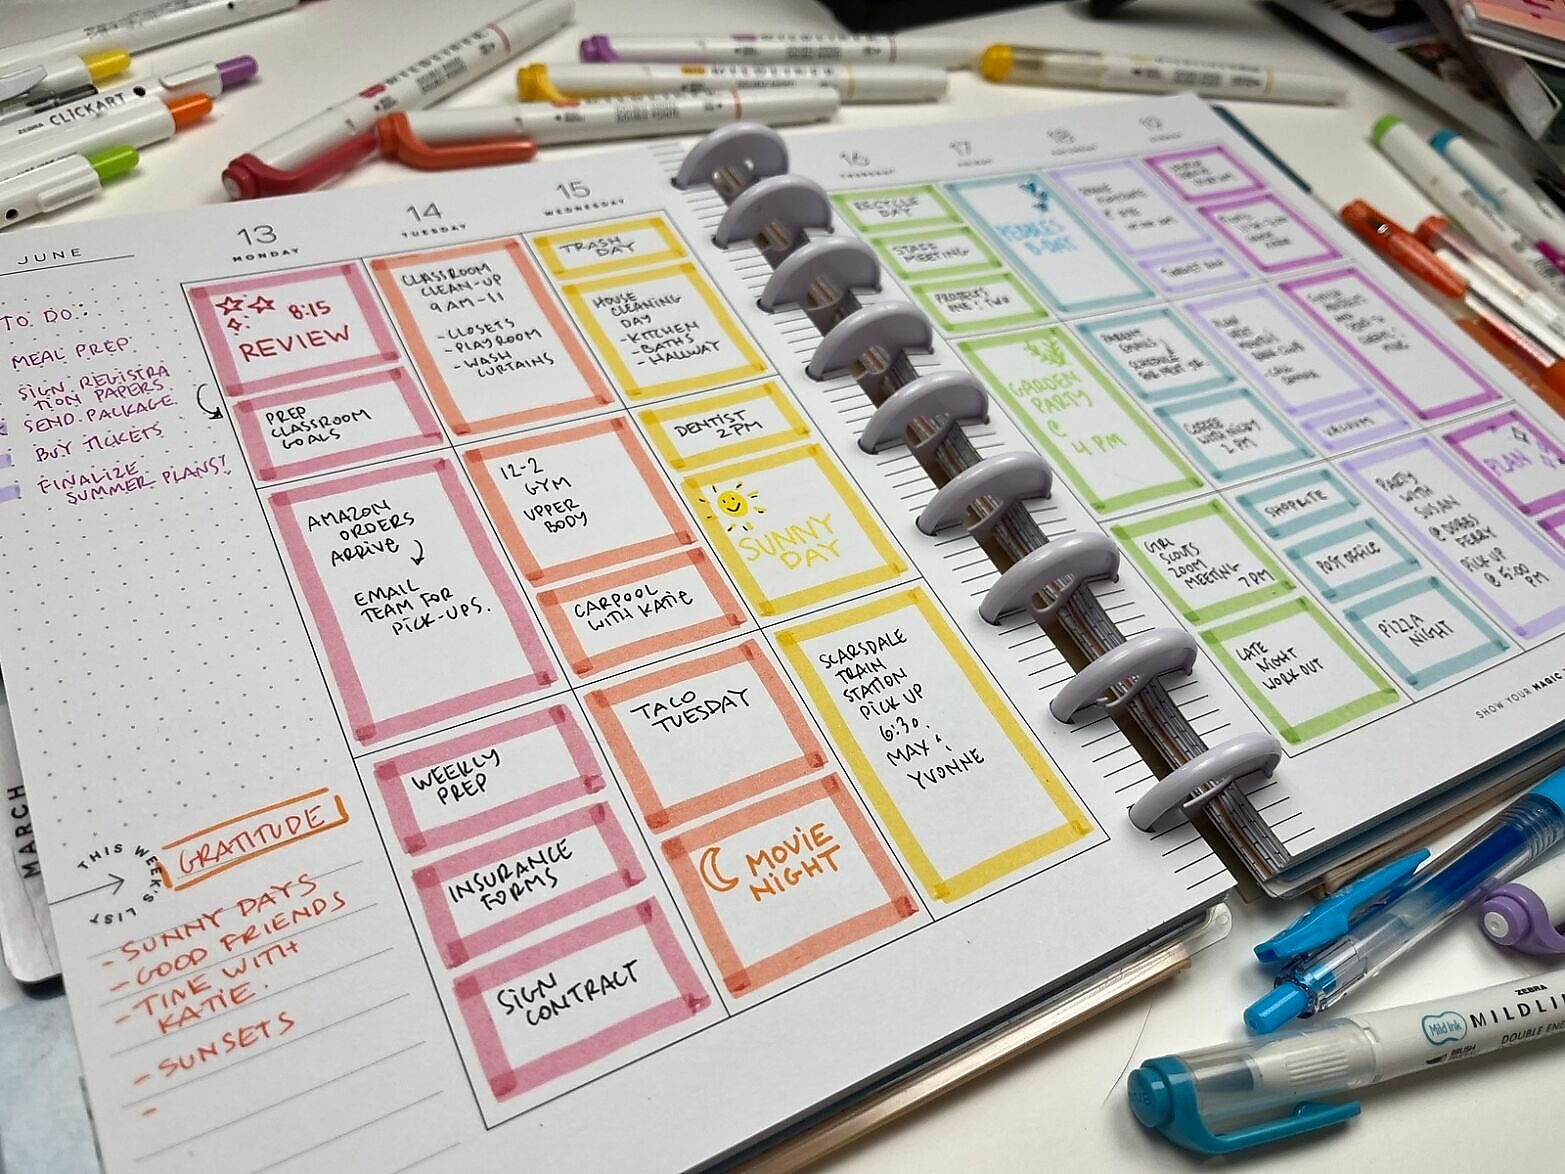 JUNE
TO DO:
MEAL PREP
SIGN REGISTRA
TION PAPERS
SEND PACKAGE
BUY TICKETS
FINALIZE
SUMMER PLANS!
MARCH
THIS WEEK'S LIST
GRATITUDE
- SUNNY DAYS
- GOOD FRIENDS
- TIME WITH
KATIE.
- SUNSETS
-
13
MONDAY
8:15
REVIEW
PREP
CLASSROOM
GOALS
AMAZON
ORDERS
ARRIVE
EMAIL
TEAM FOR
PICK-UPS.
WEEKLY
PREP
INSURANCE
FORMS
SIGN
CONTRACT
14
TUESDAY
CLASSROOM
CLEAN-UP
9AM-11
- CLOSETS
- PLAYROOM
- WASH
CURTAINS
12-2
GYM
UPPER
BODY
CARPOOL
WITH KATIE
TACO
TUESDAY
MOVIE
NIGHT
15
WEDNESDAY
TRASH
DAY
HOUSE
CLEANING
DAY
- KITCHEN
- BATHS
- HALLWAY
DENTIST
2PM
SUNNY
DAY
SCARSDALE
TRAIN
STATION
PICK UP
6:30.
MAX &
YVONNE
16
THURSDAY
RECYCLE
DAY
STAFF
MEETING
PROJECTS
ONE & TWO
GARDEN
PARTY
@
4 PM
GIRL
SCOUTS
ZOOM
MEETING
7PM
LATE
NIGHT
WORK OUT
17
B-DAY
PARENT
EMAILS
COFFEE
1 PM
SHOPRITE
POST OFFICE
PIZZA
NIGHT
18
VACUUM
PARTY
WITH
SUSAN
@ DOBBS
FERRY
PICK UP
@ 5:00
PM
19
PLAN
SHOW YOUR MAGIC
ZEBRA CLICKART
ZEBRA
Mild Ink
MILDLI
DOUBLE EN
BRUSH